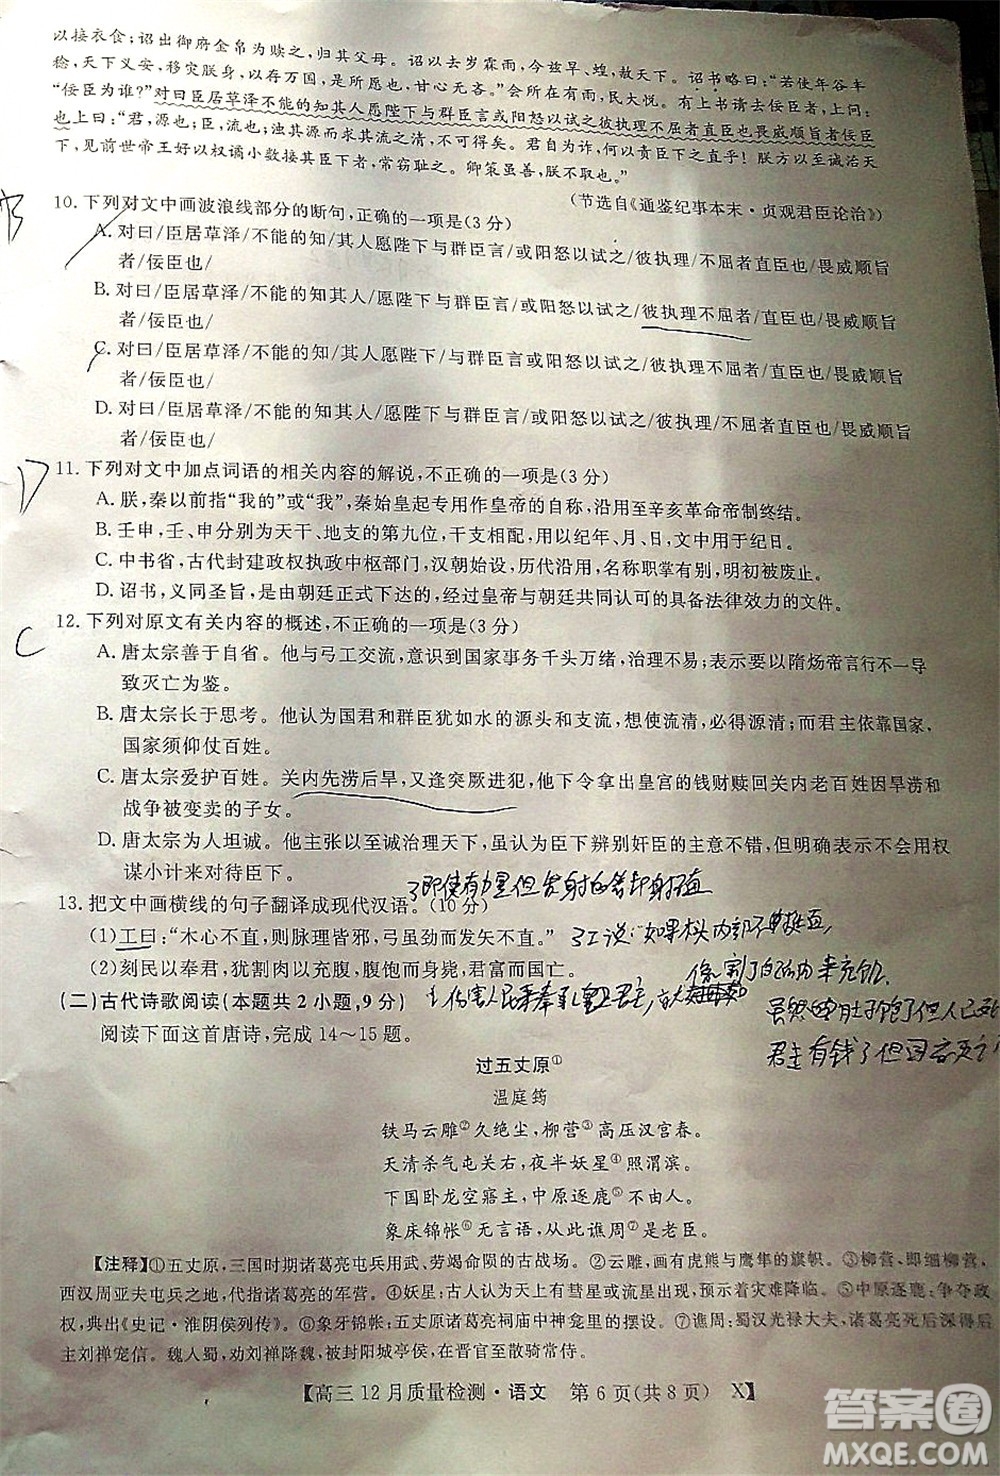 以接衣食；诏出御府金帛为赎之，归其父母。诏以去岁霖雨，今兹旱、蝗，赦天下。诏书略曰：“若使年谷丰
稔，天下乂安，移灾朕身，以存万国，是所愿也，甘心无吝。”会所在有雨，民大悦。有上书请去佞臣者，上问：
“佞臣为谁？”对曰臣居草泽不能的知其人愿陛下与群臣言或阳怒以试之彼执理不屈者直臣也畏威顺旨者佞臣
也上曰：“君，源也；臣，流也；浊其源而求其流之清，不可得矣。君自为诈，何以责臣下之直乎！朕方以至诚治天
下，见前世帝王好以权谲小数接其臣下者，常窃耻之。卿策虽善，朕不取也。”
（节选自《通鉴纪事本末·贞观君臣论治》）
10. 下列对文中画波浪线部分的断句，正确的一项是（3分）
A. 对曰/臣居草泽/不能的知/其人愿陛下与群臣言/或阳怒以试之/彼执理/不屈者直臣也/畏威顺旨
者/佞臣也/
B. 对曰/臣居草泽/不能的知其人/愿陛下与群臣言/或阳怒以试之/彼执理不屈者/直臣也/畏威顺旨
者/佞臣也/
C. 对曰/臣居草泽/不能的知/其人愿陛下/与群臣言/或阳怒以试之/彼执理不屈者/直臣也/畏威顺旨
者/佞臣也/
D. 对曰/臣居草泽/不能的知其人/愿陛下与群臣言/或阳怒以试之/彼执理/不屈者直臣也/畏威顺旨
者/佞臣也/
D
11. 下列对文中加点词语的相关内容的解说，不正确的一项是（3分）
A. 朕，秦以前指“我的”或“我”，秦始皇起专用作皇帝的自称，沿用至辛亥革命帝制终结。
B. 壬申，壬、申分别为天干、地支的第九位，干支相配，用以纪年、月、日，文中用于纪日。
C. 中书省，古代封建政权执政中枢部门，汉朝始设，历代沿用，名称职掌有异，明初被废止。
D. 诏书，义同圣旨，是由朝廷正式下达的，经皇帝与朝廷共同认可的具备法律效力的文件。
C
12. 下列对原文有关内容的概述，不正确的一项是（3分）
A. 唐太宗善于自省。他与弓工交流，意识到国家事务千头万绪，治理不易；表示要以隋炀帝言行不一
致灭亡为鉴。
B. 唐太宗长于思考。他认为国君和群臣犹如水的源头和支流，想使流清，必得源清；而君主依靠国家，
国家须仰仗百姓。
C. 唐太宗爱护百姓。关内先涝后旱，又逢突厥进犯，他下令拿出皇宫的钱财赎回关内老百姓因旱涝和
战争被变卖的子女。
D. 唐太宗为人坦诚。他主张以至诚治理天下，虽然认为臣下辨别奸臣的主意不错，但明确表示不会用
谋小计来对待臣下。
13. 把文中画横线的句子翻译成现代汉语。（10分）
（1）工曰：“木心不直，则脉理皆邪，弓虽劲而发矢不直。”
（2）刻民以奉君，犹割肉以充腹，腹饱而身毙，君富而国亡。
（二）古代诗歌阅读（本题共2小题，9分）
阅读下面这首唐诗，完成14～15题。
过五丈原①
温庭筠
铁马云雕②久绝尘，柳营③高压汉宫春。
天清杀气屯关右，夜半妖星④照渭滨。
下国卧龙空寤主，中原逐鹿⑤不由人。
象床锦帐⑥无言语，从此谯周⑦是老臣。
【注释】①五丈原，三国时期诸葛亮屯兵用武、劳竭命陨的古战场。②云雕，画有虎熊与鹰隼的旗帜。③柳营，即细柳营，
西汉周亚夫屯兵之地，代指诸葛亮的军营。④妖星：古人认为天上若有彗星或流星出现，预示着灾难降临。⑤中原逐鹿：争夺政
权，典出《史记·淮阴侯列传》。⑥象牙锦帐：五丈原诸葛亮祠庙中神龛里的摆设。⑦谯周：蜀汉光禄大夫，诸葛亮死后深得后
主刘禅宠信。魏人蜀，劝刘禅降魏，被封阳城亭侯，在晋官至散骑常侍。
【高三12月质量检测·语文 第6页（共8页） X】
答案圈
MXQE.COM